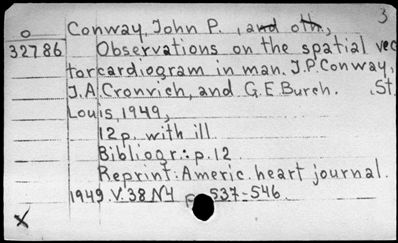 3
o Conway, John P., and oth,
32786 Observations on the spatial vec
torcardiogram in man. J.P. Conway,
J.A. Cronvich, and G.E. Burch. St.
Louis, 1949,
12p. with ill.
Bibliogr.: p. 12.
Reprint: Americ. heart journal.
1949. V. 38 N4 p. 537-546.
x